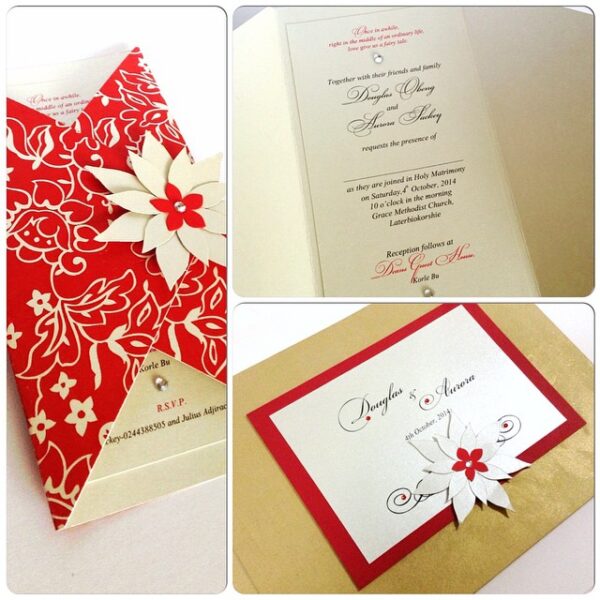 Once in awhile,
right in the middle of an ordinary
Korle Bu
R.S.V.P.
key-0244388505 and Julius Adjirac
Once in awhile,
right in the middle of an ordinary life,
love give us a fairy tale.
Together with their friends and family
Douglas Obeng
and
Aurora Sackey
requests the presence of
as they are joined in Holy Matrimony
on Saturday,4th October, 2014
10 o'clock in the morning
Grace Methodist Church,
Laterbiokorshie
Reception follows at
Guest House.
Korle Bu
Douglas & Aurora
4th October, 2014